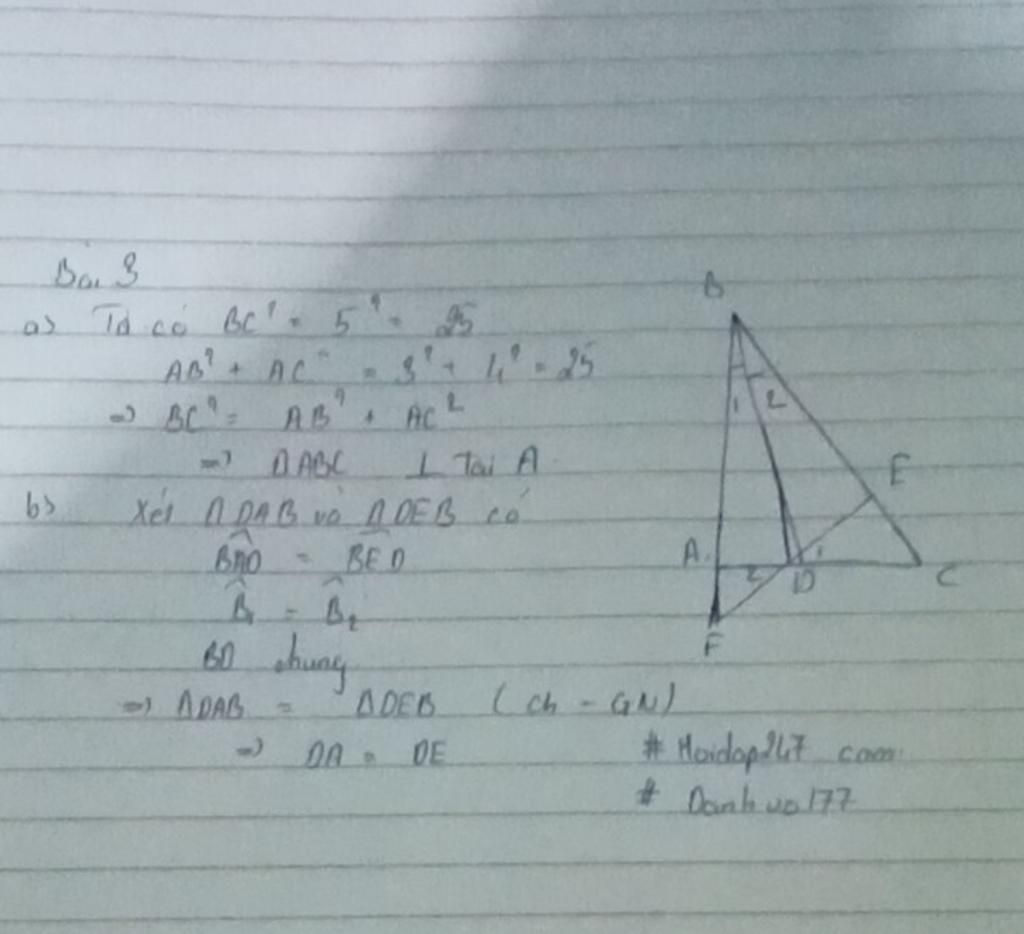 Bài 3
a) Ta có BC² = 5² = 25
AB² + AC² = 3² + 4² = 25
=> BC² = AB² + AC²
=> ΔABC ⊥ Tại A
b) Xét ΔDAB và ΔDEB có
BAD^ = BED^
B₁^ = B₂^
BD chung
=> ΔDAB = ΔDEB (Ch - GN)
=> DA = DE
# Hoidap247 com
# Danhvo177
B
1 2
E
A 2 D 1 C
F